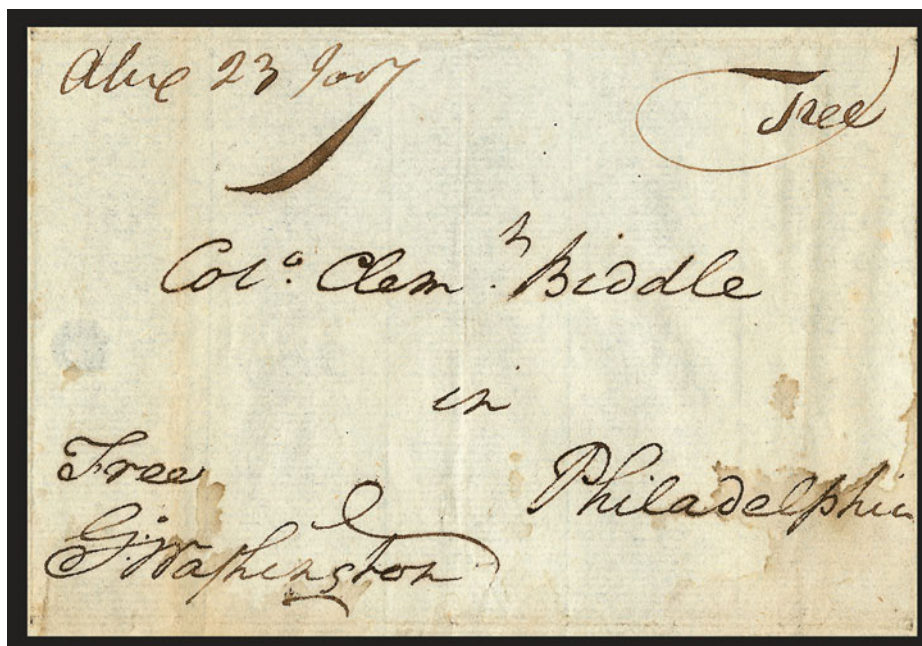 Alex 23 Jany
Free
Colo. Clemt. Biddle
in
Philadelphia
Free
Go: Washington